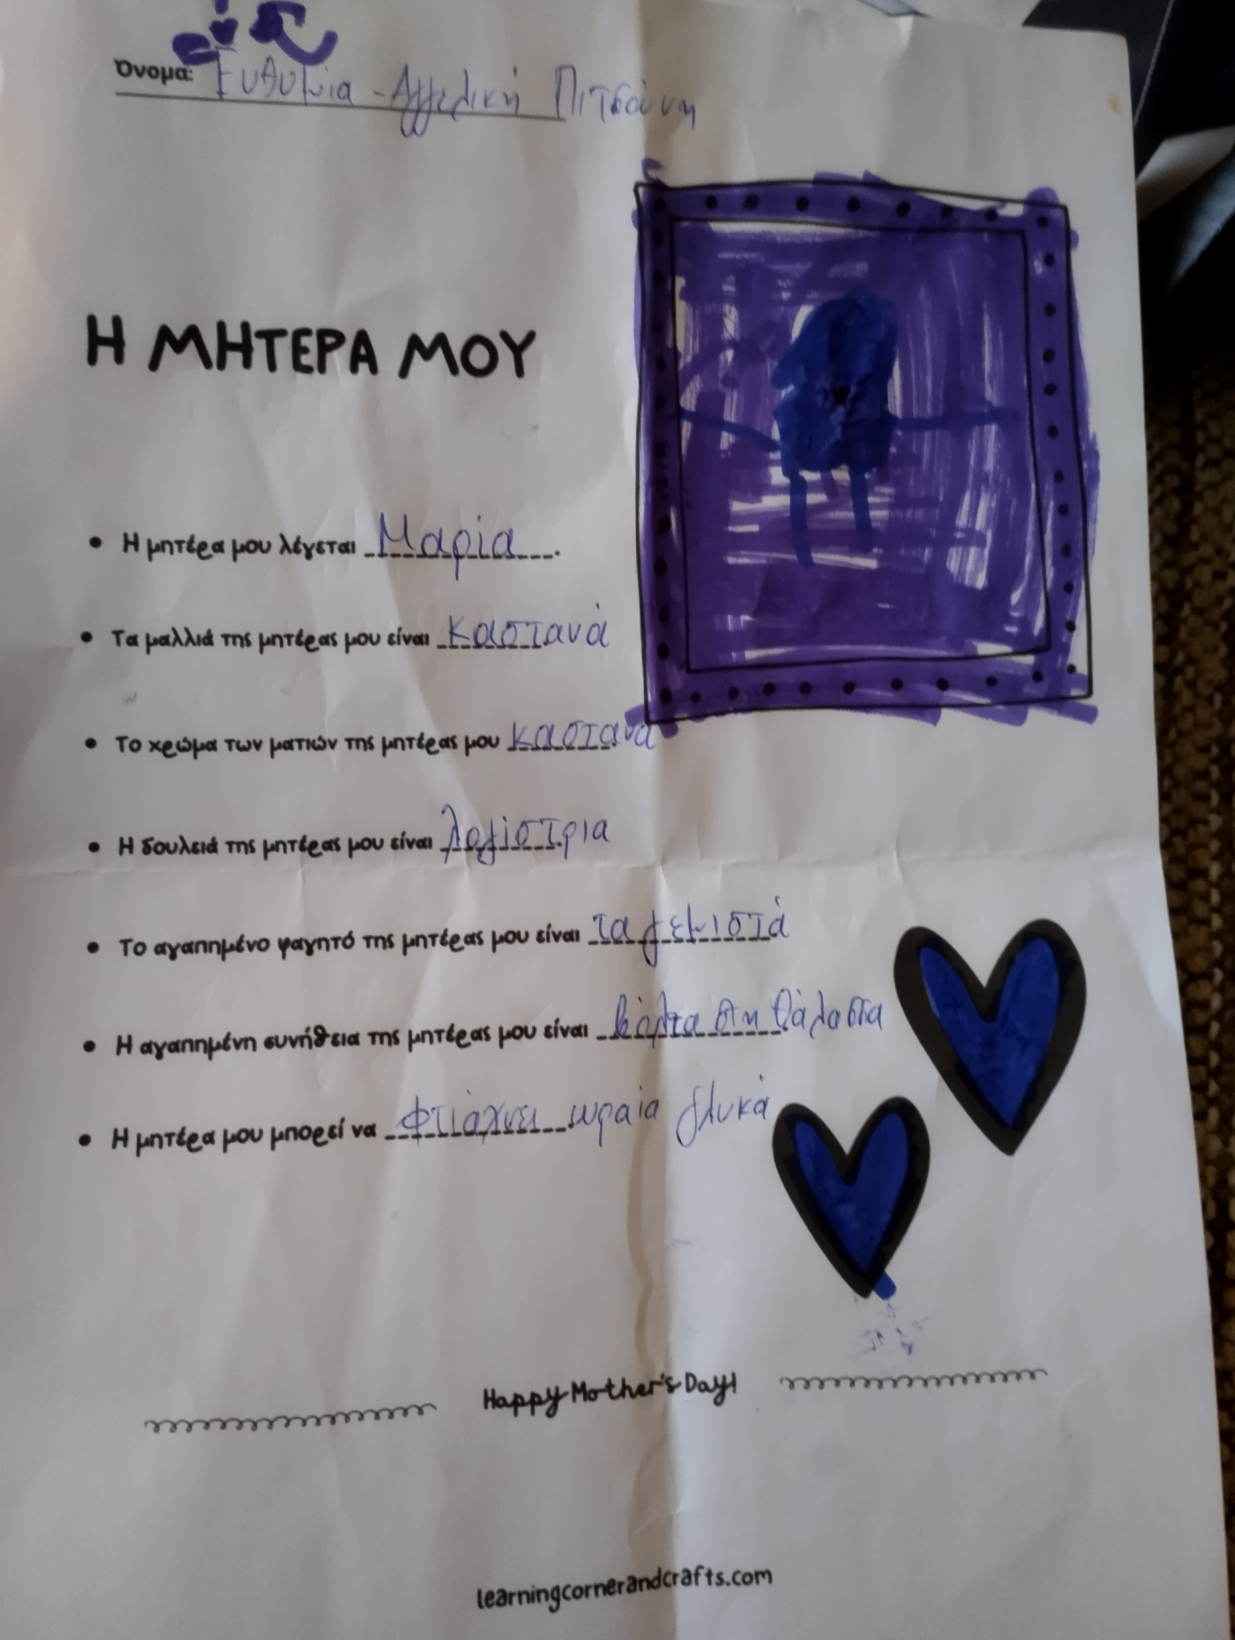 Όνομα: Ευθυμία - Αγγελική Πιτσούνη
Η ΜΗΤΕΡΑ ΜΟΥ
• Η μητέρα μου λέγεται Μαρία.
• Τα μαλλιά της μητέρας μου είναι καστανά
• Το χρώμα των ματιών της μητέρας μου καστανά
• Η δουλειά της μητέρας μου είναι λογίστρια
• Το αγαπημένο φαγητό της μητέρας μου είναι τα γεμιστά
• Η αγαπημένη συνήθεια της μητέρας μου είναι βόλτα στη θάλασσα
• Η μητέρα μου μπορεί να φτιάχνει ωραία γλυκά
Happy Mother's Day!
learningcornerandcrafts.com